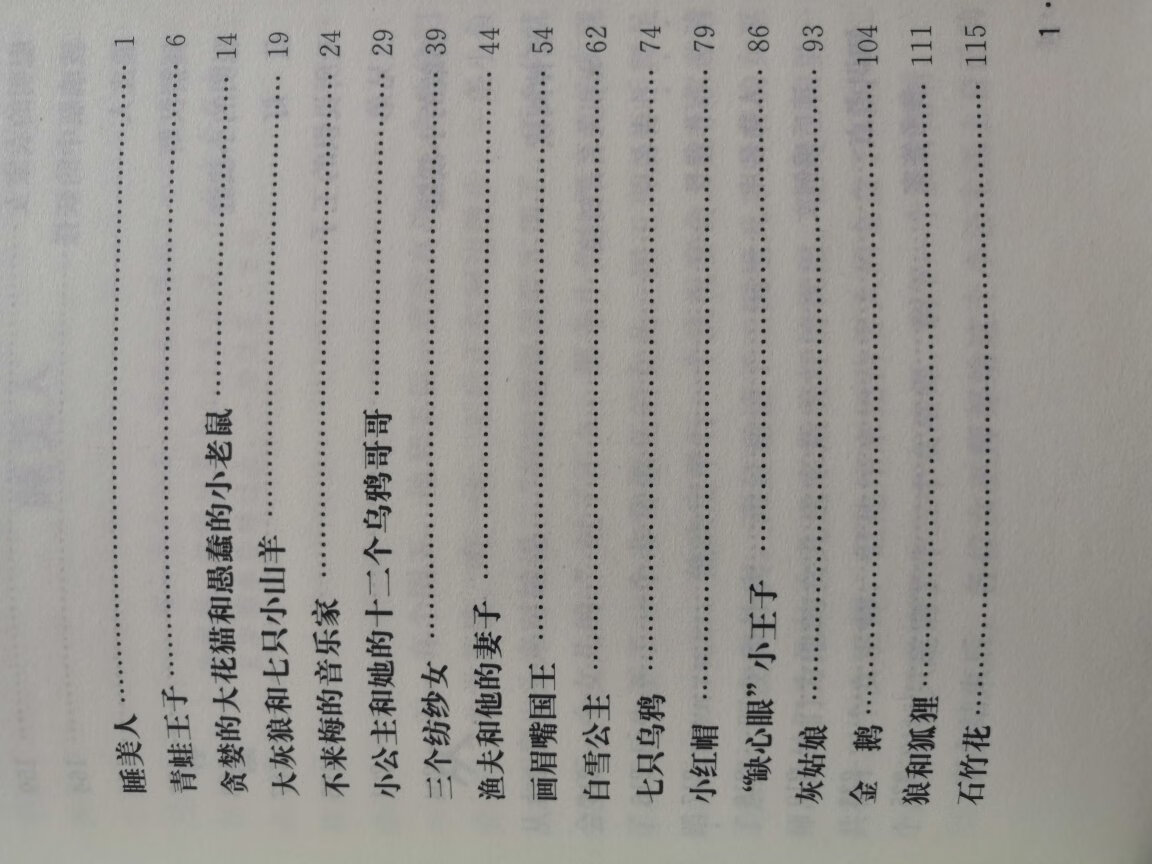 睡美人……………………………………1
青蛙王子……………………………………6
贪婪的大花猫和愚蠢的小老鼠……………………14
大灰狼和七只小山羊……………………………19
不来梅的音乐家…………………………………24
小公主和她的十二个乌鸦哥哥……………………29
三个纺纱女……………………………………39
渔夫和他的妻子…………………………………44
画眉嘴国王……………………………………54
白雪公主……………………………………62
七只乌鸦……………………………………74
小红帽……………………………………79
“缺心眼”小王子…………………………………86
灰姑娘……………………………………93
金　鹅……………………………………104
狼和狐狸……………………………………111
石竹花……………………………………115
1 ·